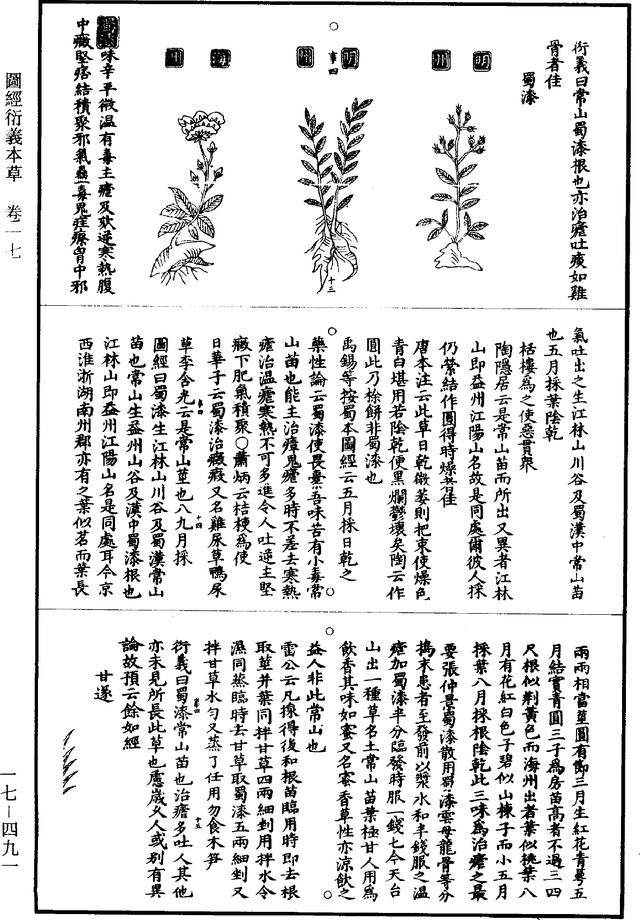 衍義曰常山蜀漆根也亦治瘧吐痰如雞
骨者佳
蜀漆
明州
明州
海州
味辛平微溫有毒主瘧及欬逆寒熱腹
中癥堅痞結積聚邪氣蠱毒鬼疰療胷中邪
圖經衍義本草 卷一七
氣吐出之生江林山川谷及蜀漢中常山苗
也五月採葉陰乾
栝樓為之使惡貫眾
陶隱居云是常山苗而所出又異者江林
山即益州江陽山名故是同處爾彼人採
仍縈結作圓得時燥者佳
唐本注云此草日乾微萎則把束使燥色
青白堪用若陰乾便黑爛鬱壞矣陶云作
圓此乃餅非蜀漆也
禹錫等按蜀本圖經云五月採日乾之
藥性論云蜀漆使畏橐吾味苦有小毒常
山苗也能主治瘴鬼瘧多時不差去寒熱
瘧治溫瘧寒熱不可多進令人吐逆主堅
癥下肥氣積聚〇蕭炳云桔梗為使
日華子云蜀漆治癥瘕又名雞尿草鴨尿
草李含光云是常山莖也八九月採
圖經曰蜀漆生江林山川谷及蜀漢常山
苗也常山生益州山谷及漢中蜀漆根也
江林山即益州江陽山名是同處耳今京
西淮浙湖南州郡亦有之葉似茗而葉長
兩兩相當莖圓有節三月生紅花青萼五
月結實青圓三子為房苗高者不過三四
尺根似荊黃色而海州出者葉似桃葉八
月有花紅白色子碧似山楝子而小五月
採葉八月採根陰乾此二味為治瘧之最
要張仲景蜀漆散用蜀漆雲母龍骨等分
擣末患者至發前以漿水和半錢服之溫
瘧加蜀漆半分臨發時服一錢匕今天台
山出一種草名土常山苗葉極甘人用為
飲香其味如蜜又名蜜香草性亦涼飲之
益人非此常山也
雷公云凡採得後和根苗臨用時即去根
取莖并葉同拌甘草四兩細剉用拌水令
濕同蒸臨時去甘草取蜀漆五兩細剉又
拌甘草水勻又蒸了任用勿食木笋
衍義曰蜀漆常山苗也治瘧多吐人其他
亦未見所長此草也慮歲久人或別有異
論故預云餘如經
甘遂
一七－四九一